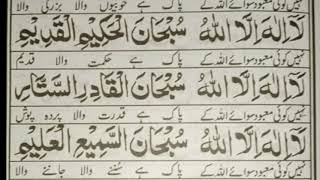 نہیں کوئی معبود سوائے اللہ کے پاک ہے خوبیوں والا بزرگی والا
لَآ اِلٰهَ اِلَّا اللهُ سُبْحَانَ الْحَكِيْمِ الْقَدِيْمِ
نہیں کوئی معبود سوائے اللہ کے پاک ہے حکمت والا قدیم
لَآ اِلٰهَ اِلَّا اللهُ سُبْحَانَ الْقَادِرِ السَّتَّارِ
نہیں کوئی معبود سوائے اللہ کے پاک ہے قدرت والا پردہ پوش
لَآ اِلٰهَ اِلَّا اللهُ سُبْحَانَ السَّمِيْعِ الْعَلِيْمِ
نہیں کوئی معبود سوائے اللہ کے پاک ہے سننے والا جاننے والا